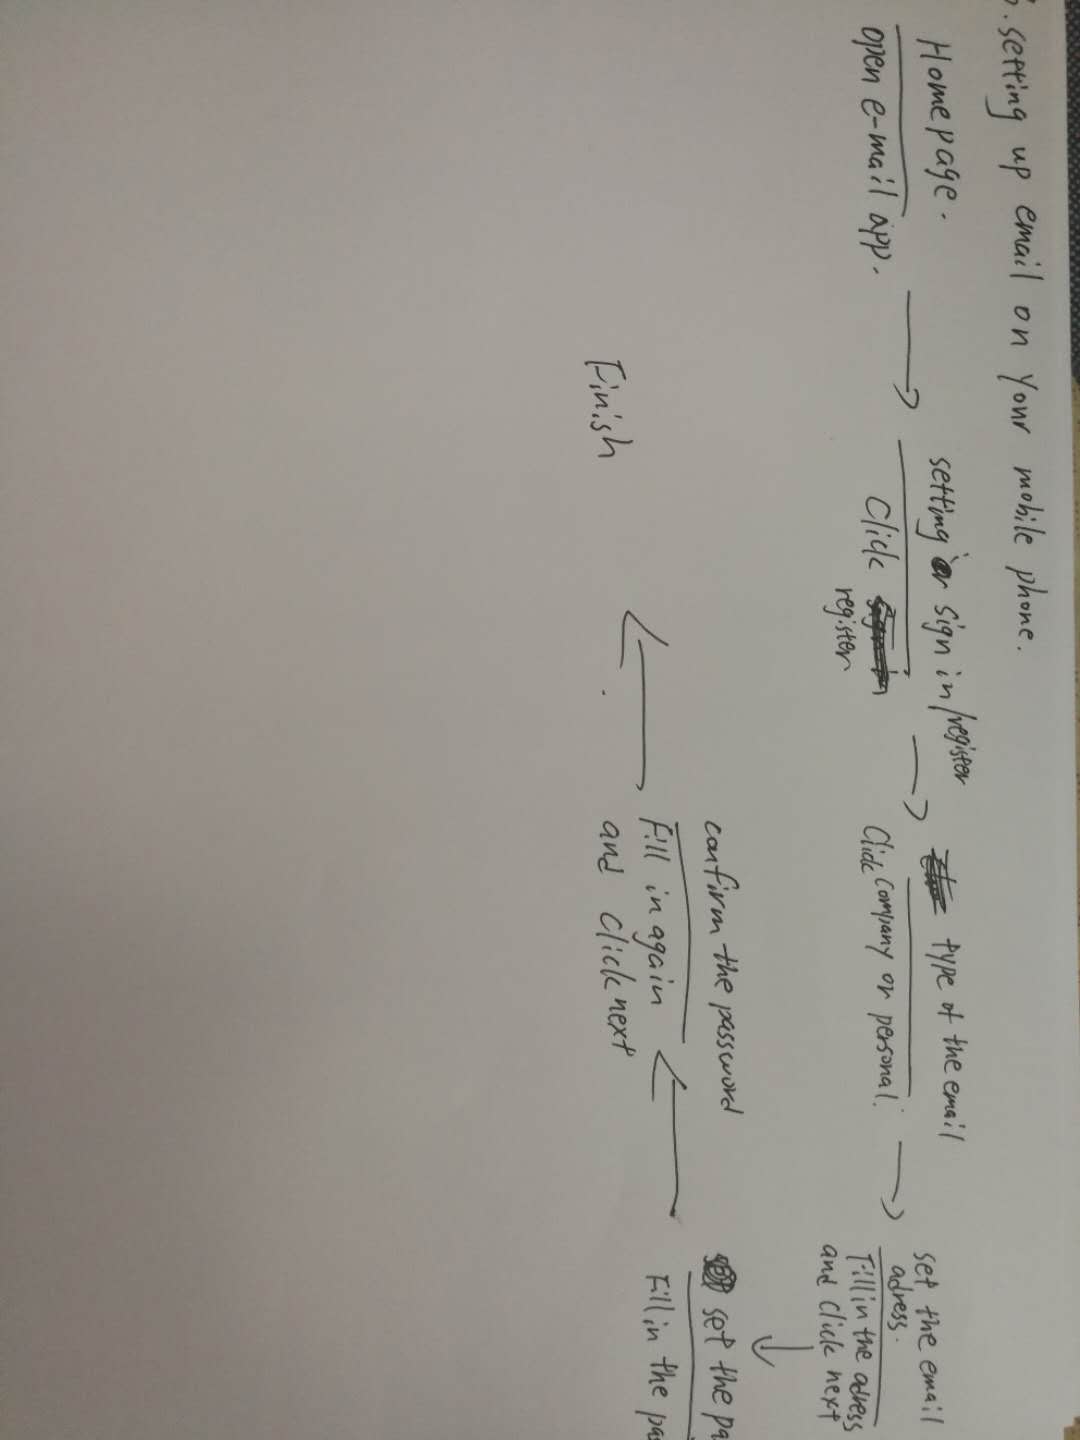 . setting up email on your mobile phone.
Homepage.
open e-mail app.
setting or sign in/register
Click
register
type of the email
Click company or personal.
set the email
adress.
Fill in the adress
and click next
set the pa
Fill in the pas
confirm the password
Fill in again
and click next
Finish